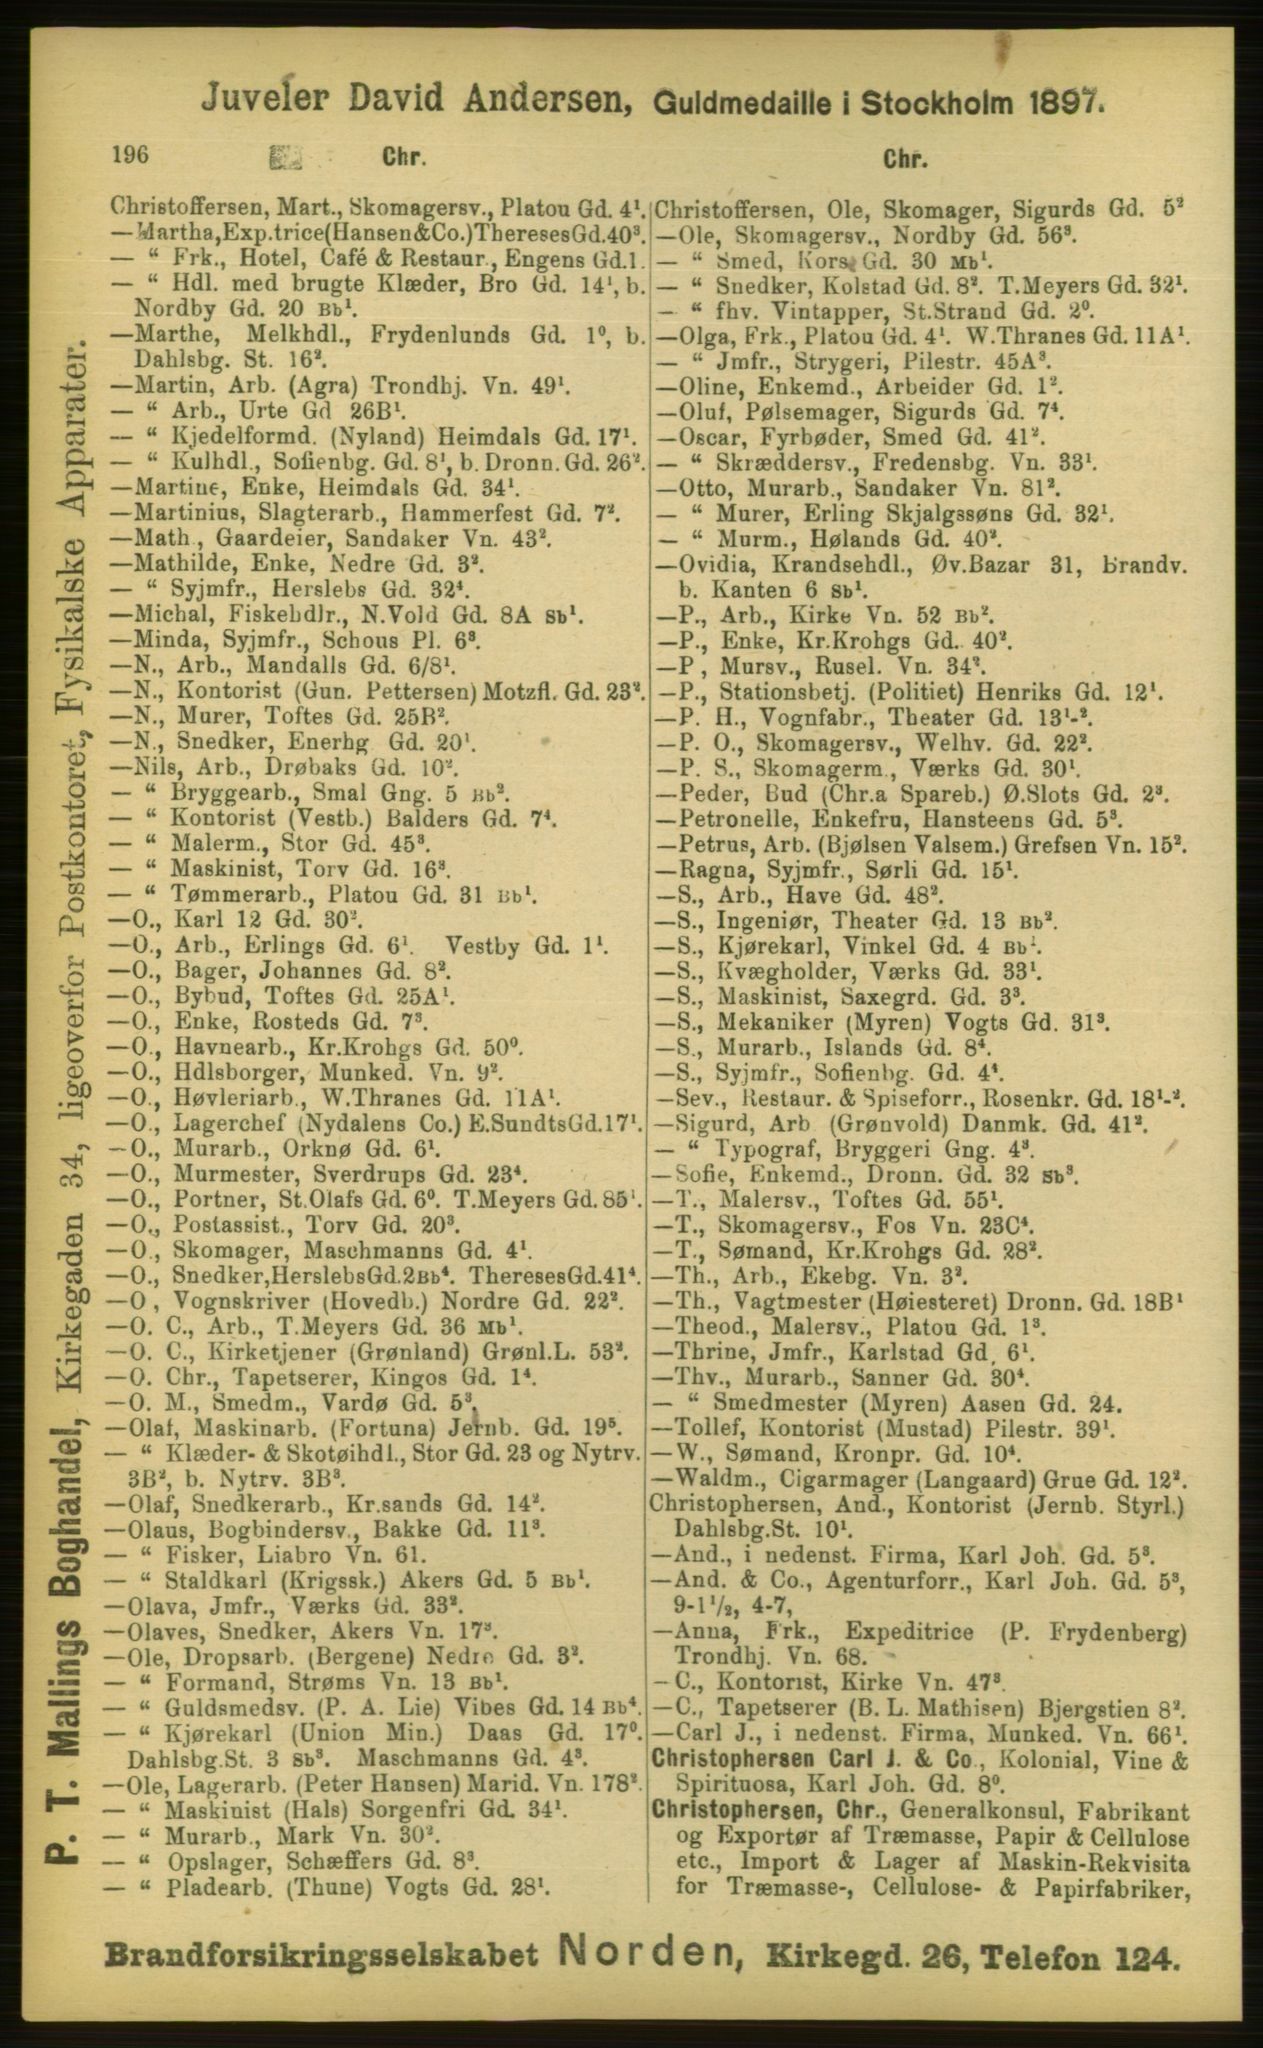 Juveler David Andersen, Guldmedaille i Stockholm 1897.
196
Chr.
Chr.
P. T. Mallings Boghandel, Kirkegaden 34, ligeoverfor Postkontoret, Fysikalske Apparater.
Christoffersen, Mart., Skomagersv., Platou Gd. 4¹.
—Martha,Exp.trice(Hansen&Co.)ThereseGd.40³.
— “ Frk., Hotel, Café & Restaur., Engens Gd.1.
— “ Hdl. med brugte Klæder, Bro Gd. 14¹, b.
Nordby Gd. 20 Bb¹.
—Marthe, Melkhdl., Frydenlunds Gd. 1⁰, b.
Dahlsbg. St. 16².
—Martin, Arb. (Agra) Trondhj. Vn. 49¹.
— “ Arb., Urte Gd 26B¹.
— “ Kjedelformd. (Nyland) Heimdals Gd. 17¹.
— “ Kulhdl., Sofienbg. Gd. 8¹, b. Dronn. Gd. 26².
—Martine, Enke, Heimdals Gd. 34¹.
—Martinius, Slagterarb., Hammerfest Gd. 7².
—Math., Gaardeier, Sandaker Vn. 43².
—Mathilde, Enke, Nedre Gd. 3².
— “ Syjmfr., Herslebs Gd. 32⁴.
—Michal, Fiskehdlr., N.Vold Gd. 8A Sb¹.
—Minda, Syjmfr., Schous Pl. 6³.
—N., Arb., Mandalls Gd. 6/8¹.
—N., Kontorist (Gun. Pettersen) Motzfl. Gd. 23².
—N., Murer, Toftes Gd. 25B².
—N., Snedker, Enerhg Gd. 20¹.
—Nils, Arb., Drøbaks Gd. 10².
— “ Bryggearb., Smal Gng. 5 Bb².
— “ Kontorist (Vestb.) Balders Gd. 7⁴.
— “ Malerm., Stor Gd. 45³.
— “ Maskinist, Torv Gd. 16³.
— “ Tømmerarb., Platou Gd. 31 Bb¹.
—O., Karl 12 Gd. 30².
—O., Arb., Erlings Gd. 6¹. Vestby Gd. 1¹.
—O., Bager, Johannes Gd. 8².
—O., Bybud, Toftes Gd. 25A¹.
—O., Enke, Rosteds Gd. 7³.
—O., Havnearb., Kr.Krohgs Gd. 50⁰.
—O., Hdlsborger, Munked. Vn. 9².
—O., Høvleriarb., W.Thranes Gd. 11A¹.
—O., Lagerchef (Nydalens Co.) E.SundtsGd.17¹.
—O., Murarb., Orknø Gd. 6¹.
—O., Murmester, Sverdrups Gd. 23⁴.
—O., Portner, St.Olafs Gd. 6⁰. T.Meyers Gd. 85¹.
—O., Postassist., Torv Gd. 20³.
—O., Skomager, Maschmanns Gd. 4¹.
—O., Snedker,HerslebsGd.2Bb⁴. ThereseGd.41⁴.
—O, Vognskriver (Hovedb.) Nordre Gd. 22².
—O. C., Arb., T.Meyers Gd. 36 Mb¹.
—O. C., Kirketjener (Grønland) Grønl.L. 53².
—O. Chr., Tapetserer, Kingos Gd. 1⁴.
—O. M., Smedm., Vardø Gd. 5³.
—Olaf, Maskinarb. (Fortuna) Jernb. Gd. 19⁵.
— “ Klæder- & Skotøihdl., Stor Gd. 23 og Nytrv.
3B², b. Nytrv. 3B³.
—Olaf, Snedkerarb., Kr.sands Gd. 14².
—Olaus, Bogbindersv., Bakke Gd. 11³.
— “ Fisker, Liabro Vn. 61.
— “ Staldkarl (Krigssk.) Akers Gd. 5 Bb¹.
—Olava, Jmfr., Værks Gd. 33².
—Olaves, Snedker, Akers Vn. 17³.
—Ole, Dropsarb. (Bergene) Nedre Gd. 3².
— “ Formand, Strøms Vn. 13 Bb¹.
— “ Guldsmedsv. (P. A. Lie) Vibes Gd. 14 Bb⁴.
— “ Kjørekarl (Union Min.) Daas Gd. 17⁰.
Dahlsbg.St. 3 Sb³. Maschmanns Gd. 4³.
—Ole, Lagerarb. (Peter Hansen) Marid. Vn. 178².
— “ Maskinist (Hals) Sorgenfri Gd. 34¹.
— “ Murarb., Mark Vn. 30².
— “ Opslager, Schæffers Gd. 8³.
— “ Pladearb. (Thune) Vogts Gd. 28¹.
Christoffersen, Ole, Skomager, Sigurds Gd. 5²
—Ole, Skomagersv., Nordby Gd. 56³.
— “ Smed, Kors Gd. 30 Mb¹.
— “ Snedker, Kolstad Gd. 8². T.Meyers Gd. 32¹.
— “ fhv. Vintapper, St.Strand Gd. 2⁰.
—Olga, Frk., Platou Gd. 4¹. W.Thranes Gd. 11A¹.
— “ Jmfr., Strygeri, Pilestr. 45A³.
—Oline, Enkemd., Arbeider Gd. 1².
—Oluf, Pølsemager, Sigurds Gd. 7⁴.
—Oscar, Fyrbøder, Smed Gd. 41².
— “ Skræddersv., Fredensbg. Vn. 33¹.
—Otto, Murarb., Sandaker Vn. 81².
— “ Murer, Erling Skjalgssøns Gd. 32¹.
— “ Murm., Hølands Gd. 40².
—Ovidia, Krandsehdl., Øv.Bazar 31, Brandv.
b. Kanten 6 Sb¹.
—P., Arb., Kirke Vn. 52 Bb².
—P., Enke, Kr.Krohgs Gd. 40².
—P, Mursv., Rusel. Vn. 34².
—P., Stationsbetj. (Politiet) Henriks Gd. 12¹.
—P. H., Vognfabr., Theater Gd. 13¹-².
—P. O., Skomagersv., Welhv. Gd. 22².
—P. S., Skomagerm., Værks Gd. 30¹.
—Peder, Bud (Chr.a Spareb.) Ø.Slots Gd. 2³.
—Petronelle, Enkefru, Hansteens Gd. 5³.
—Petrus, Arb. (Bjølsen Valsem.) Grefsen Vn. 15².
—Ragna, Syjmfr., Sørli Gd. 15¹.
—S., Arb., Have Gd. 48².
—S., Ingeniør, Theater Gd. 13 Bb².
—S., Kjørekarl, Vinkel Gd. 4 Bb¹.
—S., Kvægholder, Værks Gd. 33¹.
—S., Maskinist, Saxegrd. Gd. 3³.
—S., Mekaniker (Myren) Vogts Gd. 31³.
—S., Murarb., Islands Gd. 8⁴.
—S., Syjmfr., Sofienbg. Gd. 4⁴.
—Sev., Restaur. & Spiseforr., Rosenkr. Gd. 18¹-².
—Sigurd, Arb (Grønvold) Danmk. Gd. 41².
— “ Typograf, Bryggeri Gng. 4³.
—Sofie, Enkemd., Dronn. Gd. 32 Sb³.
—T., Malersv., Toftes Gd. 55¹.
—T., Skomagersv., Fos Vn. 23C⁴.
—T., Sømand, Kr.Krohgs Gd. 28².
—Th., Arb., Ekebg. Vn. 3².
—Th., Vagtmester (Høiesteret) Dronn. Gd. 18B¹
—Theod., Malersv., Platou Gd. 1³.
—Thrine, Jmfr., Karlstad Gd. 6¹.
—Thv., Murarb., Sanner Gd. 30⁴.
— “ Smedmester (Myren) Aasen Gd. 24.
—Tollef, Kontorist (Mustad) Pilestr. 39¹.
—W., Sømand, Kronpr. Gd. 10⁴.
—Waldm., Cigarmager (Langaard) Grue Gd. 12².
Christophersen, And., Kontorist (Jernb. Styrl.)
Dahlsbg.St. 10¹.
—And., i nedenst. Firma, Karl Joh. Gd. 5³.
—And. & Co., Agenturforr., Karl Joh. Gd. 5³,
9-1½, 4-7,
—Anna, Frk., Expeditrice (P. Frydenberg)
Trondhj. Vn. 68.
—C., Kontorist, Kirke Vn. 47³.
—C., Tapetserer (B. L. Mathisen) Bjergstien 8².
—Carl J., i nedenst. Firma, Munked. Vn. 66¹.
Christophersen Carl J. & Co., Kolonial, Vine &
Spirituosa, Karl Joh. Gd. 8⁰.
Christophersen, Chr., Generalkonsul, Fabrikant
og Exportør af Træmasse, Papir & Cellulose
etc., Import & Lager af Maskin-Rekvisita
for Træmasse-, Cellulose- & Papirfabriker,
Brandforsikringsselskabet Norden, Kirkegd. 26, Telefon 124.